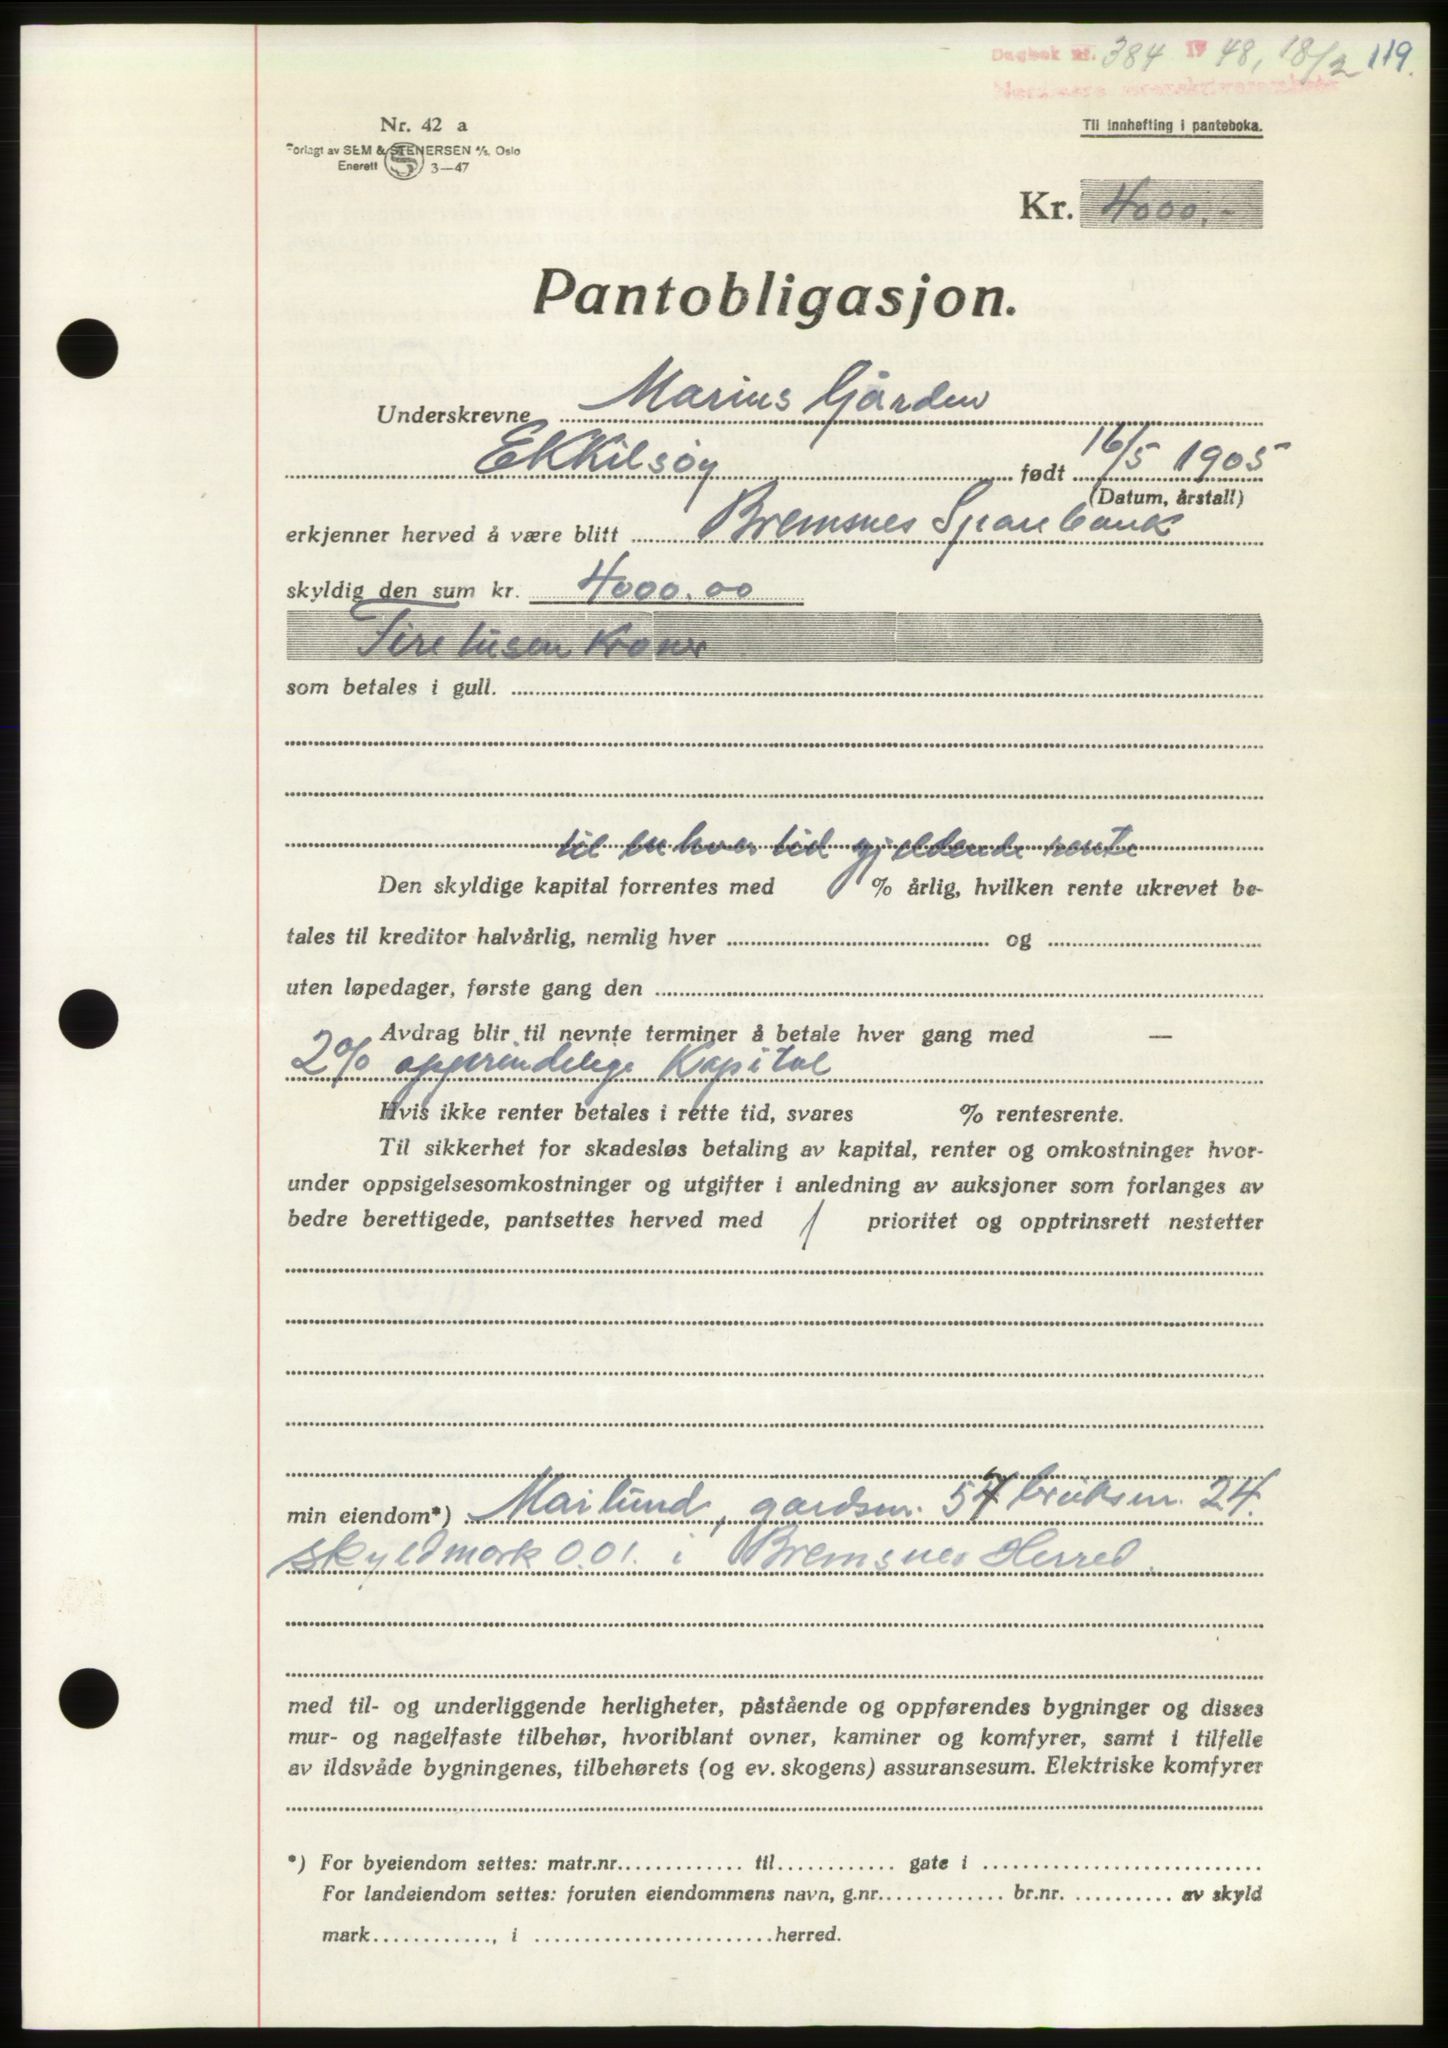 Dagbok nr. 384 19 48, 18/2 119.
Nordmøre sorenskriverembete
Nr. 42 a
Til innhefting i panteboka.
Forlagt av SEM & STENERSEN A/S, Oslo
Enerett S 3—47
Kr. 4000.-
Pantobligasjon.
Underskrevne Marius Gjården
Ekkilsøy født 16/5 1905
(Datum, årstall)
erkjenner herved å være blitt Bremsnes Sparebank
skyldig den sum kr. 4000.00
Fire tusen Kroner
som betales i gull.
til en hver tid gjeldende rente
Den skyldige kapital forrentes med % årlig, hvilken rente ukrevet be-
tales til kreditor halvårlig, nemlig hver og
uten løpedager, første gang den
Avdrag blir til nevnte terminer å betale hver gang med —
2% opprindelige Kapital
Hvis ikke renter betales i rette tid, svares % rentesrente.
Til sikkerhet for skadesløs betaling av kapital, renter og omkostninger hvor-
under oppsigelsesomkostninger og utgifter i anledning av auksjoner som forlanges av
bedre berettigede, pantsettes herved med 1 prioritet og opptrinsrett nestetter
min eiendom*) Mailund, gardsnr. 57 bruksnr. 24.
skyldmark 0.01. i Bremsnes Herred.
med til- og underliggende herligheter, påstående og oppførendes bygninger og disses
mur- og nagelfaste tilbehør, hvoriblant ovner, kaminer og komfyrer, samt i tilfelle
av ildsvåde bygningenes, tilbehørets (og ev. skogens) assuransesum. Elektriske komfyrer
*) For byeiendom settes: matr.nr............. til............ gate i ............................
For landeiendom settes: foruten eiendommens navn, g.nr............. br.nr. .......... av skyld
mark............, i ........................herred.